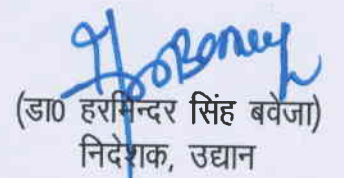 (डा० हरमिन्दर सिंह बवेजा)
निदेशक, उद्यान